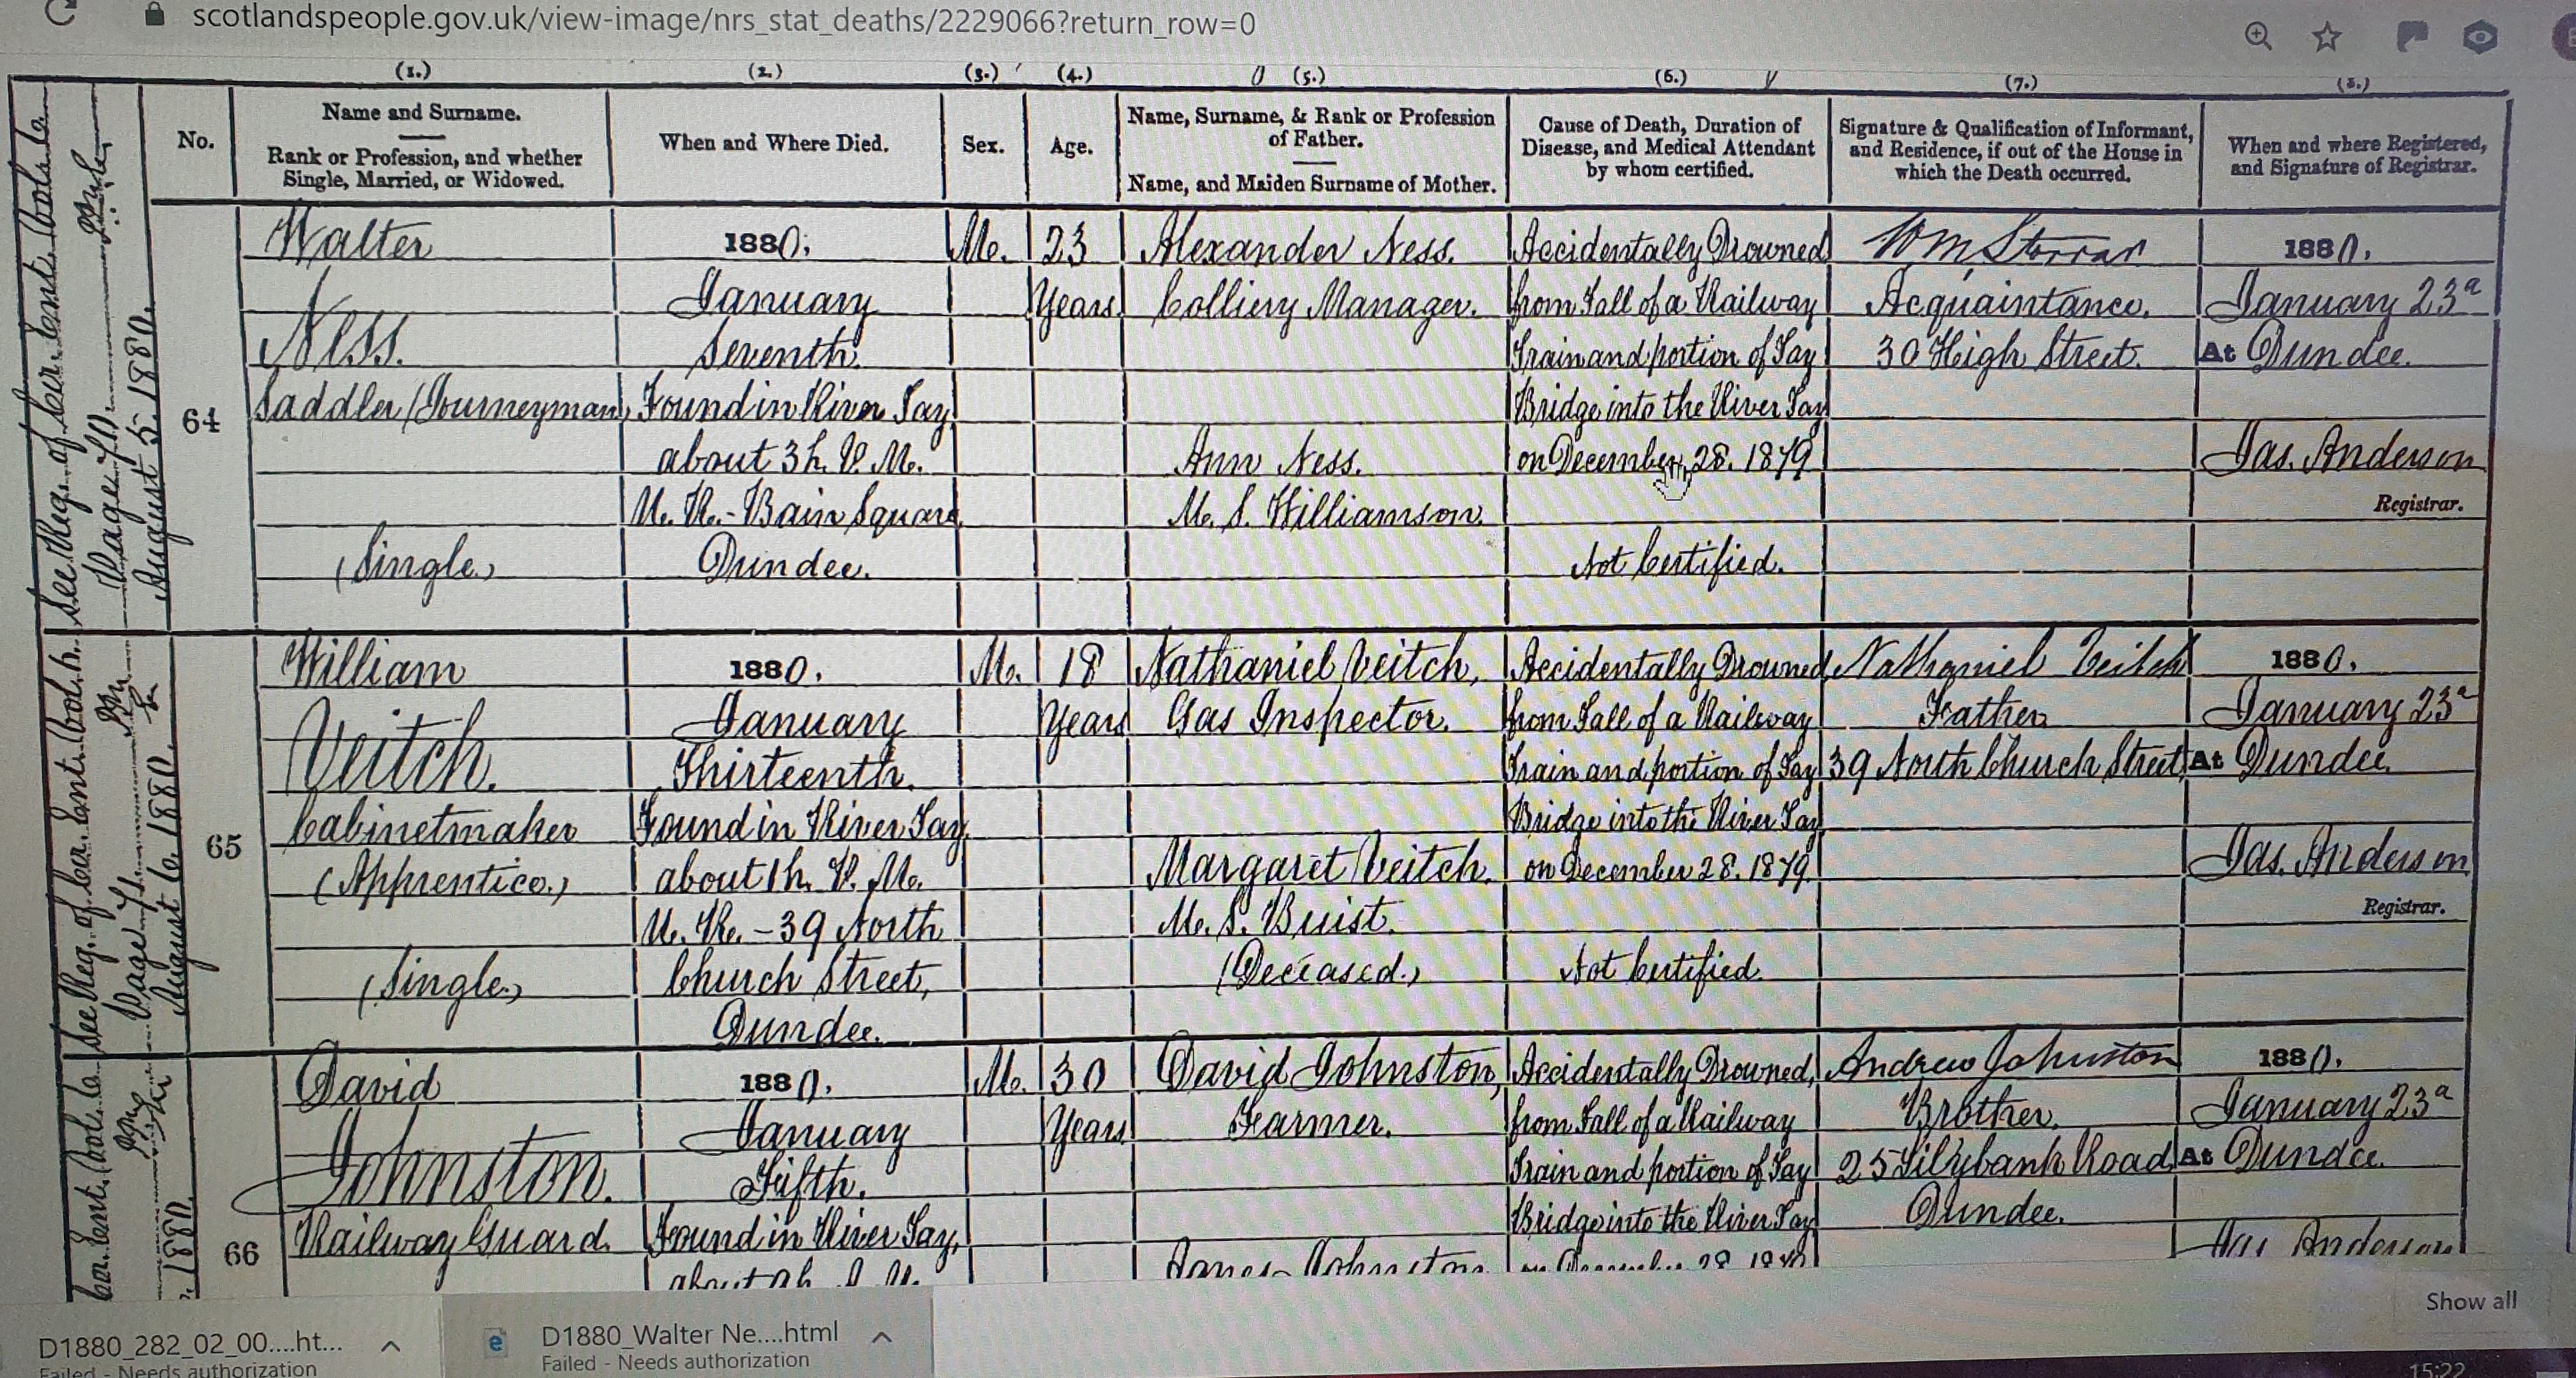 scotlandspeople.gov.uk/view-image/nrs_stat_deaths/2229066?return_row=0
(1.) (2.) (3.) (4.) (5.) (6.) (7.) (8.)
No.
Name and Surname.
Rank or Profession, and whether
Single, Married, or Widowed.
When and Where Died.
Sex.
Age.
Name, Surname, & Rank or Profession
of Father.
Name, and Maiden Surname of Mother.
Cause of Death, Duration of
Disease, and Medical Attendant
by whom certified.
Signature & Qualification of Informant,
and Residence, if out of the House in
which the Death occurred.
When and where Registered,
and Signature of Registrar.
See Reg. of Cor. Ents. Vol. 6
Page 70
August 5. 1880.
64
Walter
Ness.
Saddler (Journeyman)
(Single)
1880,
January
Seventh.
Found in River Tay
about 3h. P. M.
U. R. - Bain Square
Dundee.
M.
23
Years
Alexander Ness.
Colliery Manager.
Ann Ness.
M. S. Williamson.
Accidentally Drowned
from Fall of a Railway
Train and portion of Tay
Bridge into the River Tay
on December 28. 1879
Not Certified.
Wm Storrar
Acquaintance.
30 High Street.
1880,
January 23d
At Dundee.
Jas. Anderson
Registrar.
See Reg. of Cor. Ent. Vol. 6.
Page 71
August 6. 1880.
65
William
Veitch.
Cabinetmaker
(Apprentice.)
(Single)
1880.
January
Thirteenth.
Found in River Tay
about 1h. P. M.
U. R. - 39 North
Church Street,
Dundee.
M.
18
Years
Nathaniel Veitch,
Gas Inspector.
Margaret Veitch.
M. S. Buist.
(Deceased.)
Accidentally Drowned
from Fall of a Railway
Train and portion of Tay
Bridge into the River Tay
on December 28. 1879.
Not Certified.
Nathaniel Veitch
Father
39 North Church Street
1880,
January 23d
At Dundee
Jas. Anderson
Registrar.
Cor. Ent. Vol. 6
1880.
66
David
Johnston.
Railway Guard.
1880.
January
Fifth.
Found in River Tay,
about
M.
30
Years
David Johnston,
Farmer.
Johnston
Accidentally Drowned,
from Fall of a Railway
Train and portion of Tay
Bridge into the River Tay
on December 28 1879
Andrew Johnston
Brother.
25 Lilybank Road
Dundee.
1880.
January 23d
At Dundee.
Jas Anderson
Show all
D1880_282_02_00....ht...
Failed - Needs authorization
D1880_Walter Ne....html
Failed - Needs authorization
15:22